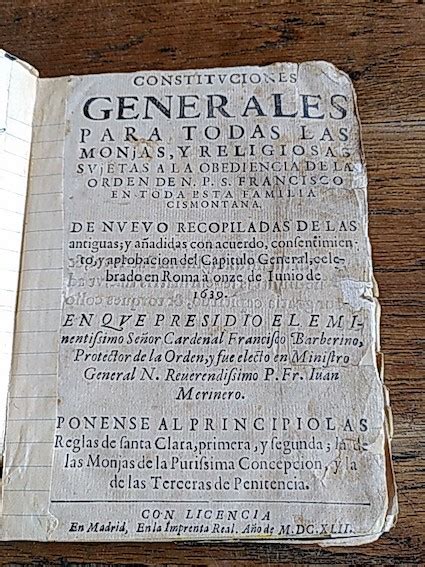 CONSTITVCIONES
GENERALES
PARA TODAS LAS
MONJAS, Y RELIGIOSAS
SVJETAS A LA OBEDIENCIA DE LA
ORDEN DE N. P. S. FRANCISCO
EN TODA ESTA FAMILIA
CISMONTANA,
DE NVEVO RECOPILADAS DE LAS
antiguas; y añadidas con acuerdo, consentimien-
to, y aprobacion del Capitulo General, cele-
brado en Roma à onze de Iunio de
1639.
EN QVE PRESIDIO EL EMI-
nentissimo Señor Cardenal Francisco Barberino,
Protector de la Orden, y fue electo en Ministro
General N. Reuerendissimo P. Fr. Iuan
Merinero.
PONENSE AL PRINCIPIO LAS
Reglas de santa Clara, primera, y segunda; la de
las Monjas de la Purissima Concepcion, y la
de las Terceras de Penitencia.
CON LICENCIA
En Madrid, En la Imprenta Real. Año de M.DC.XLII.